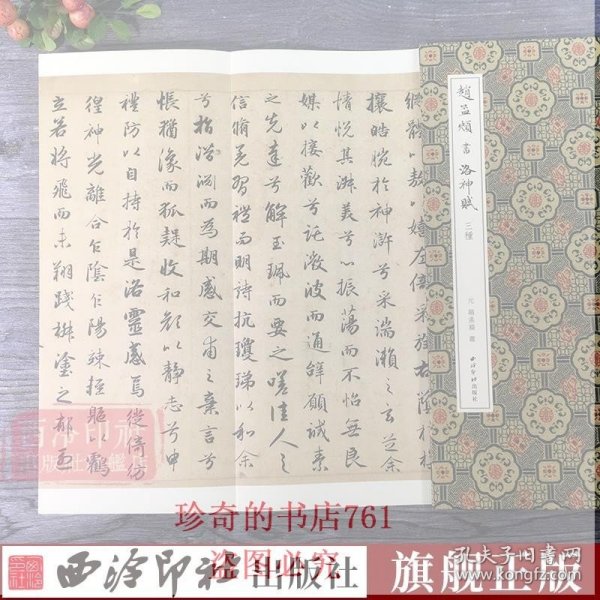 縱體以敖以嬉左倚采旄右蔭桂
攘皓腕於神滸兮采湍瀨之玄芝余
情悅其淑美兮心振蕩而不怡無良
媒以接歡兮託微波而通辭願誠素
之先達兮解玉珮而要之嗟佳人之
信脩羌習禮而明詩抗瓊珶以和余
兮指潛淵而為期感交甫之棄言兮
悵猶豫而狐疑收和顏以靜志兮申
禮防以自持於是洛靈感焉徙倚彷
徨神光離合乍陰乍陽竦輕軀以鶴
立若將飛而未翔踐椒塗之郁烈
趙孟頫書洛神賦
三種
元 趙孟頫 書
西泠印社出版社
珍奇的书店761
盗图必究
西泠印社出版社
旗舰正版
孔夫子旧书网
www.kongfz.com